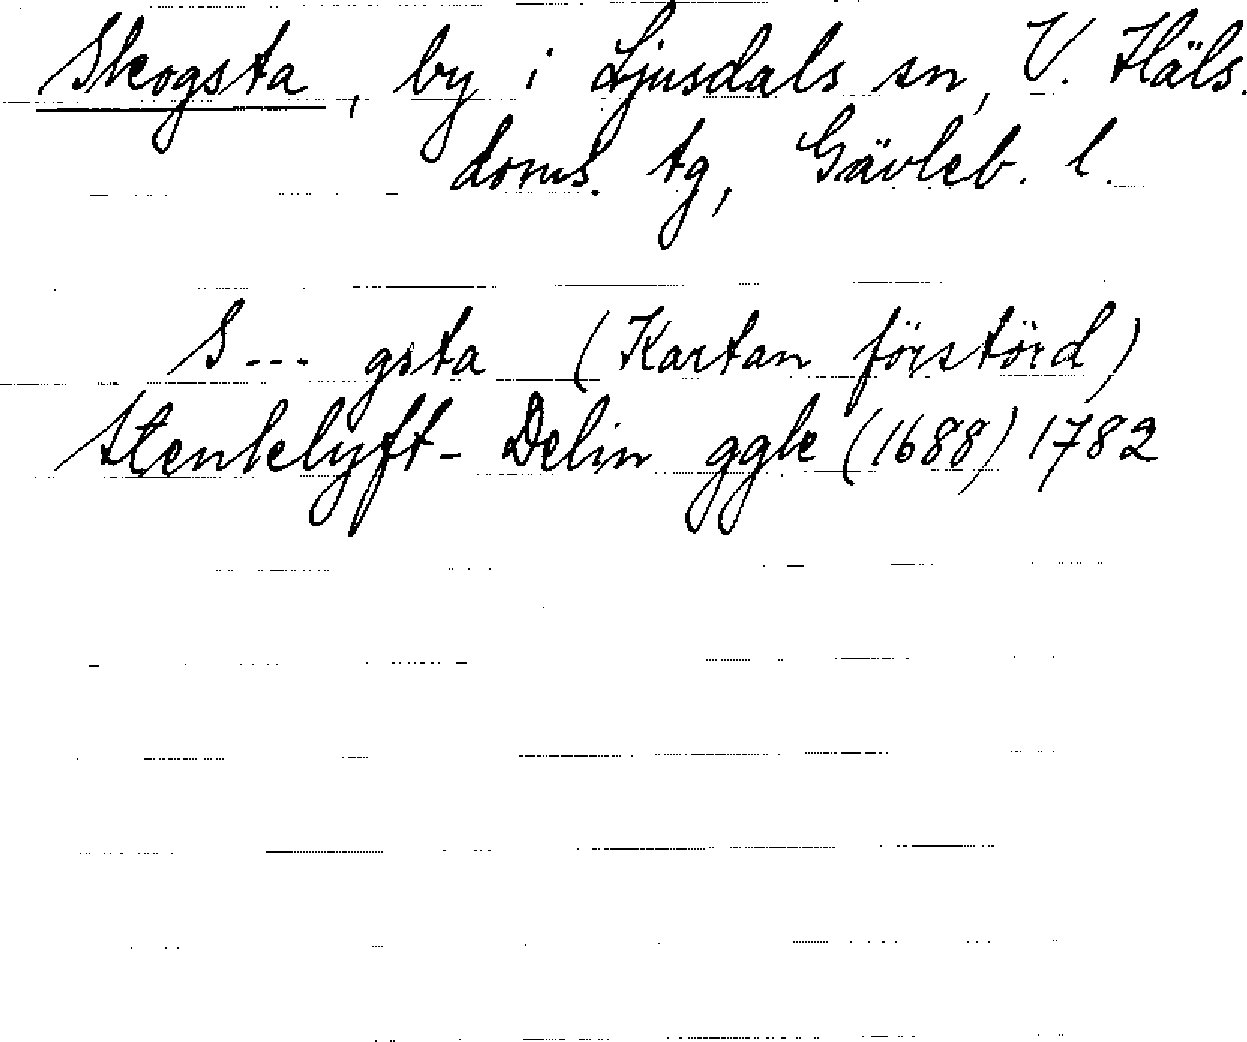 Skogsta, by i Ljusdals sn, V. Häls.
doms. tg, Gävleb. l.
S--- gsta (Kartan förstörd)
Stenkelyft- Delin ggk (1688) 1782